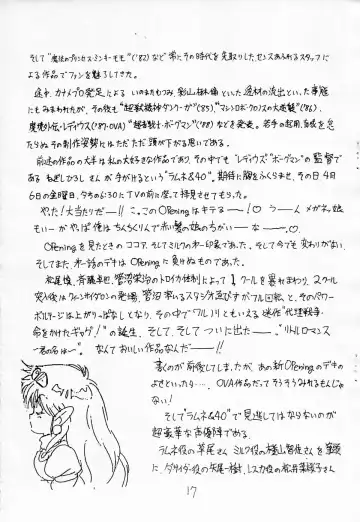 そして"魔法のプリンセス・ミンキーモモ"('82)など常にその時代を先取りした、センスあふれるスタッフに
よる作品でファンを魅了してきた。
途中、カナメプロ発足による いのまたむつみ、影山楙倫といった逸材の流出といった事態
にもみまわれたが、その後も"超獣機神ダンクーガ"('85)、"マシンロボ・クロノスの大逆襲"('86)、
魔境外伝レ・ディウス('87・OVA)"超音戦士・ボーグマン"('88)などを発表。若手の起用、自在を忘
たらぬその制作姿勢にはただただ頭が下がる思いである。
前述の作品の大半は私の大好きな作品であり、その中でも"レ・ディウス""ボーグマン"の監督で
ある ねぎしひろし さん が手がけるという"ラムネ&40"。期待に胸をふくらませ、その日4月
6日の金曜日、今ちの6:30にTVの前に座って拝見させてもらった。
やった!大当たりだ——!! こ、このOPeningはキテる——!♡ う——ん メガネっ娘
もいーが やっぱ俺は ちんちくりんで赤い髪の娘の方がい——な——。♡
OPeningを見たときの ココア、そしてミルクの第一印象であった。そして今でも変わりがない。
そしてまた、第一話のデキは OPeningに負けぬものであった。
松尾慎、斉藤卓也、菅沼栄治のトロイカ体制によって1クールを暴れまわり、2クール
突入後はクィーンサイダロンの登場、菅沼率いるスタジオ並びすがフル回転と、そのパワー
ボルテージは上がりっぱなしとなり、その中で"フル"リともいえる迷作"代理戦争・
命をかけたギャグ!"の誕生、そして、そして ついに出た——。"リトルロマンス
〜君の名は〜"。なんておいしい作品なんだ——!!
書くのが前後してしまったが、あの新OPeningのデキの
よさといったら・・・・、OVA作品だってそうそうみれるもんじゃ
ない!
そして"ラムネ&40"で見逃してはならないのが
超豪華な声優陣である。
ラムネ役の草尾さん ミルク役の横山智佐さんを筆頭
に、ダサイダー役の矢尾一樹、レスカ役の松井菜桜子さん
17